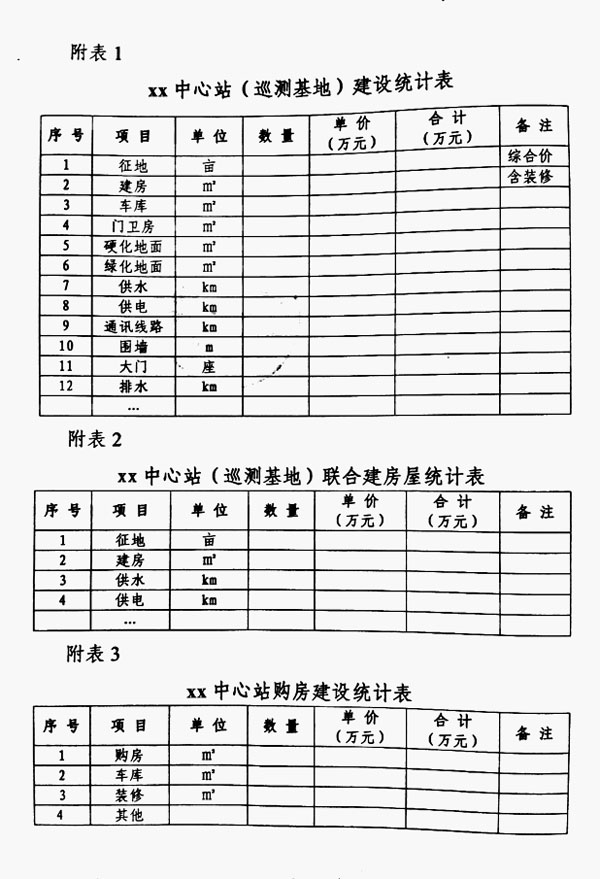 附表 1
xx 中心站（巡测基地）建设统计表
序 号 项 目 单 位 数 量 单 价 （万元） 合 计 （万元） 备 注
1 征地 亩 综合价
2 建房 ㎡ 含装修
3 车库 ㎡
4 门卫房 ㎡
5 硬化地面 ㎡
6 绿化地面 ㎡
7 供水 km
8 供电 km
9 通讯线路 km
10 围墙 m
11 大门 座
12 排水 km
…
附表 2
xx 中心站（巡测基地）联合建房屋统计表
序 号 项 目 单 位 数 量 单 价 （万元） 合 计 （万元） 备 注
1 征地 亩
2 建房 ㎡
3 供水 km
4 供电 km
…
附表 3
xx 中心站购房建设统计表
序 号 项 目 单 位 数 量 单 价 （万元） 合 计 （万元） 备 注
1 购房 ㎡
2 车库 ㎡
3 装修 ㎡
4 其他